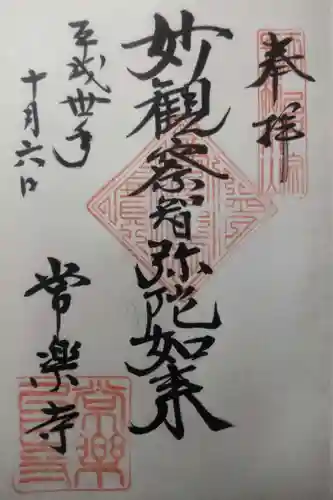 奉拝
妙観察智弥陀如来
平成卅年
十月六日
常楽寺
常樂